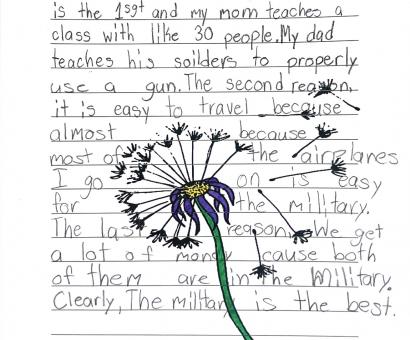 is the 1sgt and my mom teaches a
class with like 30 people. My dad
teaches his soilders to properly
use a gun. The second reason,
it is easy to travel because
almost because
most of the airplanes
I go on is easy
for the military.
The last reason We get
a lot of money cause both
of them are in the Military.
Clearly, The military is the best.